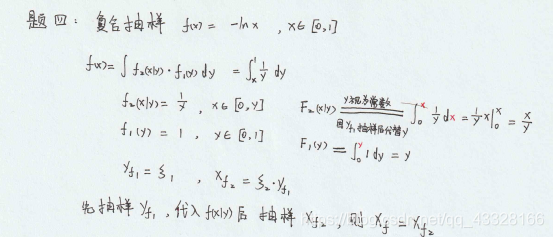 题四: 复合抽样 f(x) = -ln x , x∈[0,1]
f(x) = ∫ f₂(x|y)·f₁(y) dy = ∫ₓ¹ 1/y dy
f₂(x|y) = 1/y , x∈[0,y] F₂(x|y) y视为常数 因Yf₁抽样后代替y ∫₀ˣ 1/y dx = 1/y x|₀ˣ = x/y
f₁(y) = 1 , y∈[0,1] F₁(y) = ∫₀ʸ 1 dy = y
Yf₁ = ξ₁ , Xf₂ = ξ₂·Yf₁
先抽样 Yf₁, 代入 f(x|y)后 抽样 Xf₂, 则 Xf = Xf₂
https://blog.csdn.net/qq_43328166